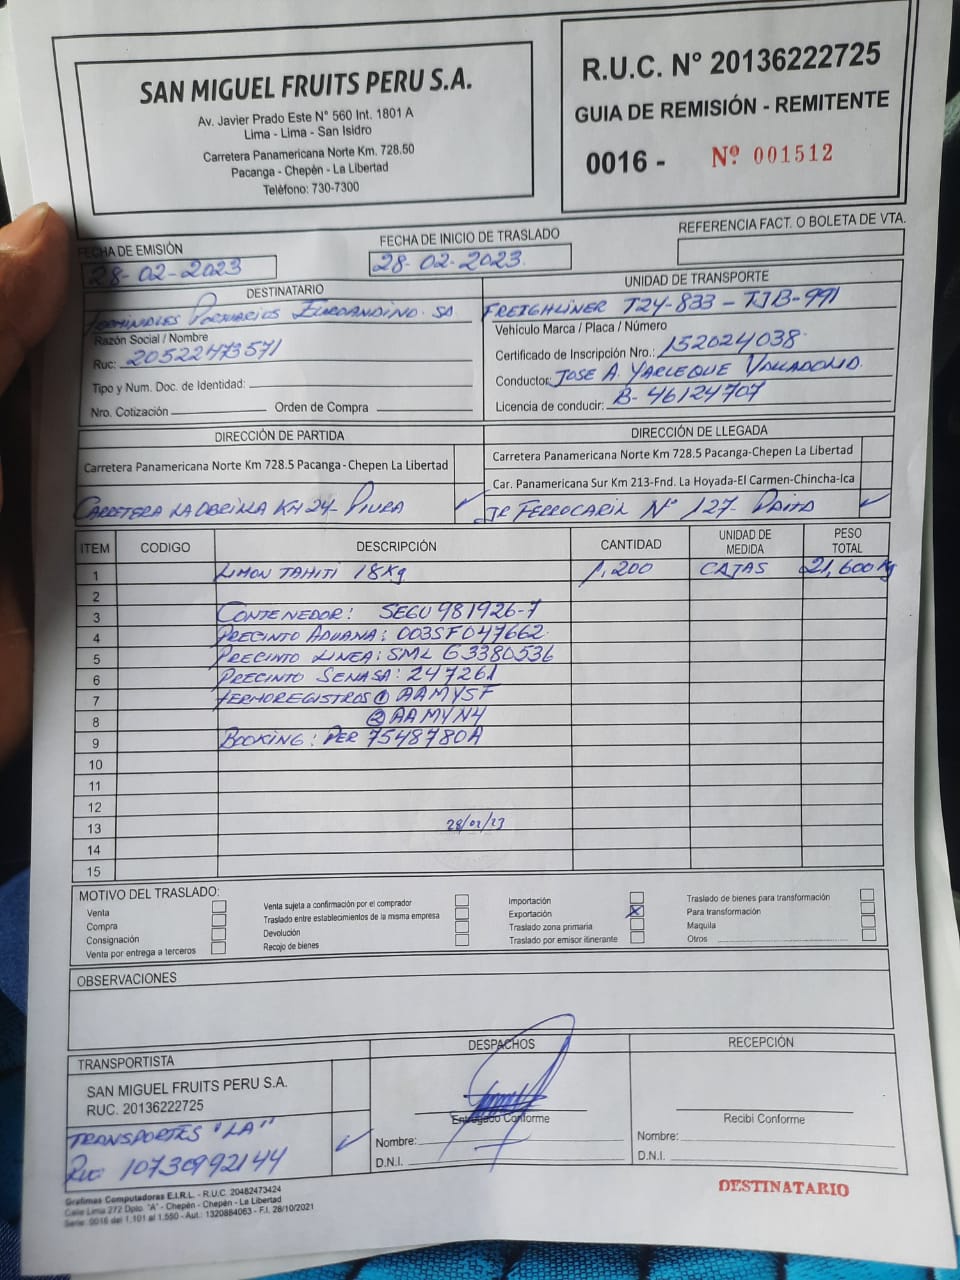 SAN MIGUEL FRUITS PERU S.A.
Av. Javier Prado Este N° 560 Int. 1801 A
Lima - Lima - San Isidro
Carretera Panamericana Norte Km. 728.50
Pacanga - Chepén - La Libertad
Teléfono: 730-7300
R.U.C. N° 20136222725
GUIA DE REMISIÓN - REMITENTE
0016 - Nº 001512
FECHA DE EMISIÓN
28-02-2023
FECHA DE INICIO DE TRASLADO
28-02-2023.
REFERENCIA FACT. O BOLETA DE VTA.
DESTINATARIO
Terminales Portuarios Euroandino. SA
Razón Social / Nombre
Ruc: 20522473571
Tipo y Num. Doc. de Identidad:
Nro. Cotización Orden de Compra
UNIDAD DE TRANSPORTE
FREIGHLINER T2Y-833 - TJB-991
Vehículo Marca / Placa / Número
Certificado de Inscripción Nro.: 152024038
Conductor: JOSE A. YARLEQUE VALLADOLID.
Licencia de conducir: B-46124707
DIRECCIÓN DE PARTIDA
Carretera Panamericana Norte Km 728.5 Pacanga-Chepen La Libertad
CARRETERA LA OBRILLA KM 24- PIURA ✓
DIRECCIÓN DE LLEGADA
Carretera Panamericana Norte Km 728.5 Pacanga-Chepen La Libertad
Car. Panamericana Sur Km 213-Fnd. La Hoyada-El Carmen-Chincha-Ica
JR FERROCARIL N° 127- PAITA ✓
ITEM CODIGO DESCRIPCIÓN CANTIDAD UNIDAD DE MEDIDA PESO TOTAL
1 LIMON TAHITI 18Kg 1,200 CAJAS 21,600 Kg
2
3 CONTENEDOR: SEGU 981926-7
4 PRECINTO ADUANA: 003SF047662
5 PRECINTO LINEA: SML G3380536
6 PRECINTO SENASA: 247261
7 TERMOREGISTROS ① AAMY5F
8 ② AAMYN4
9 BOOKING: PER 7548780A
10
11
12
13 28/02/23
14
15
MOTIVO DEL TRASLADO:
Venta
Compra
Consignación
Venta por entrega a terceros
Venta sujeta a confirmación por el comprador
Traslado entre establecimientos de la misma empresa
Devolución
Recojo de bienes
Importación
Exportación X
Traslado zona primaria
Traslado por emisor itinerante
Traslado de bienes para transformación
Para transformación
Maquila
Otros
OBSERVACIONES
TRANSPORTISTA
SAN MIGUEL FRUITS PERU S.A.
RUC. 20136222725
TRANSPORTES "LA" ✓
RUC 10730992144
DESPACHOS
Entregado Conforme
Nombre:
D.N.I.
RECEPCIÓN
Recibi Conforme
Nombre:
D.N.I.
Grafimas Computadoras E.I.R.L. - R.U.C. 20482473424
Calle Lima 272 Dpto. "A" - Chepén - Chepén - La Libertad
Serie: 0016 del 1,101 al 1,550 - Aut.: 1320884063 - F.I. 28/10/2021
DESTINATARIO